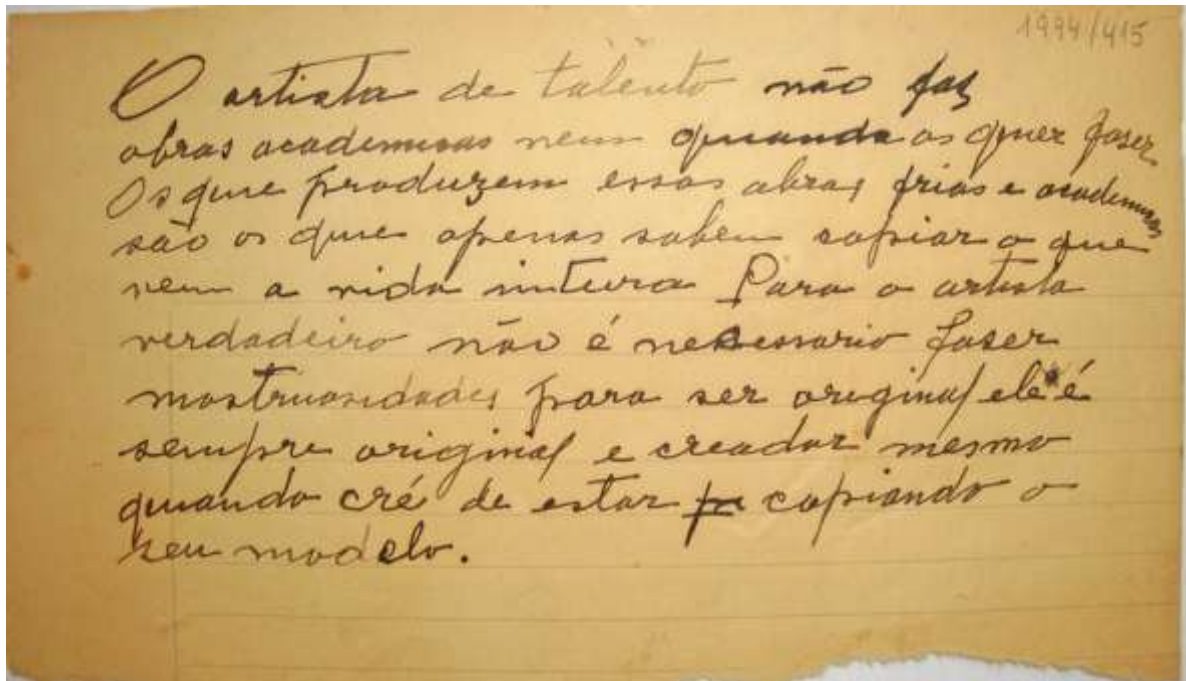 1994/415
O artista de talento não faz
obras academicas nem quando as quer faser
Os que produzem essas obras frias e academicas
são os que apenas sabem copiar o que
vem a vida inteira Para o artista
verdadeiro não é necessario faser
mostruosidades para ser original ele é
sempre original e creador mesmo
quando cré de estar copiando o
seu modelo.